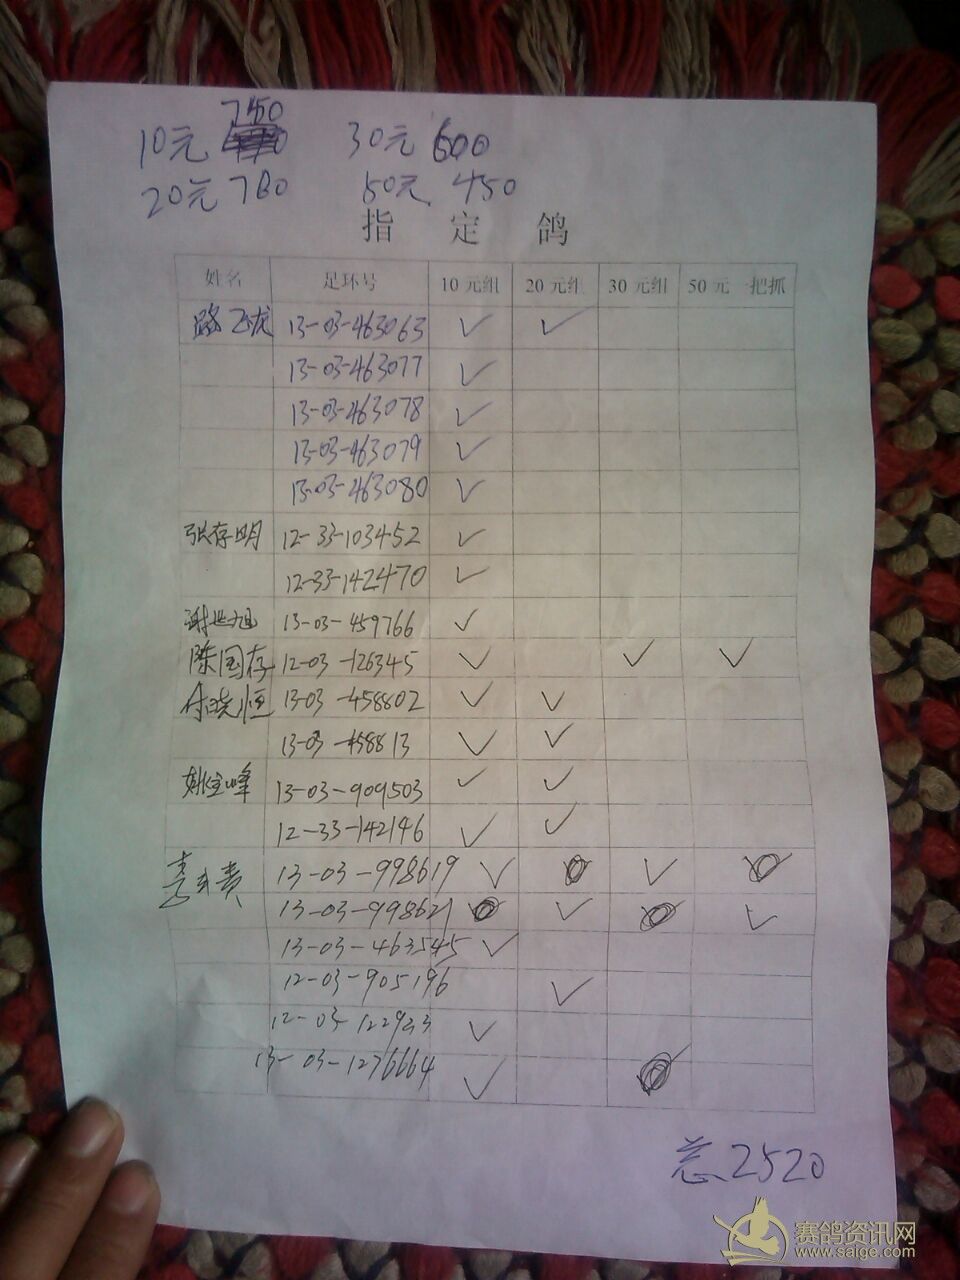 10元 750 30元 600
20元 760 50元 450
指 定 鸽
姓名 足环号 10元组 20元组 30元组 50元一把抓
路飞龙 13-03-463063 ✓ ✓
13-03-463077 ✓
13-03-463078 ✓
13-03-463079 ✓
13-03-463080 ✓
张存明 12-33-103452 ✓
12-33-142470 ✓
谢世旭 13-03-459766 ✓
陈国存 12-03-126345 ✓ ✓ ✓
付晓恒 13-03-458802 ✓ ✓
13-03-458813 ✓ ✓
姚宝峰 13-03-909503 ✓ ✓
12-33-142146 ✓ ✓
13-03-998619 ✓ ✓
13-03-998621 ✓ ✓
13-03-463545 ✓
12-03-905196 ✓
12-03-122933 ✓
13-03-1276664 ✓
总2520
赛鸽资讯网
www.saige.com